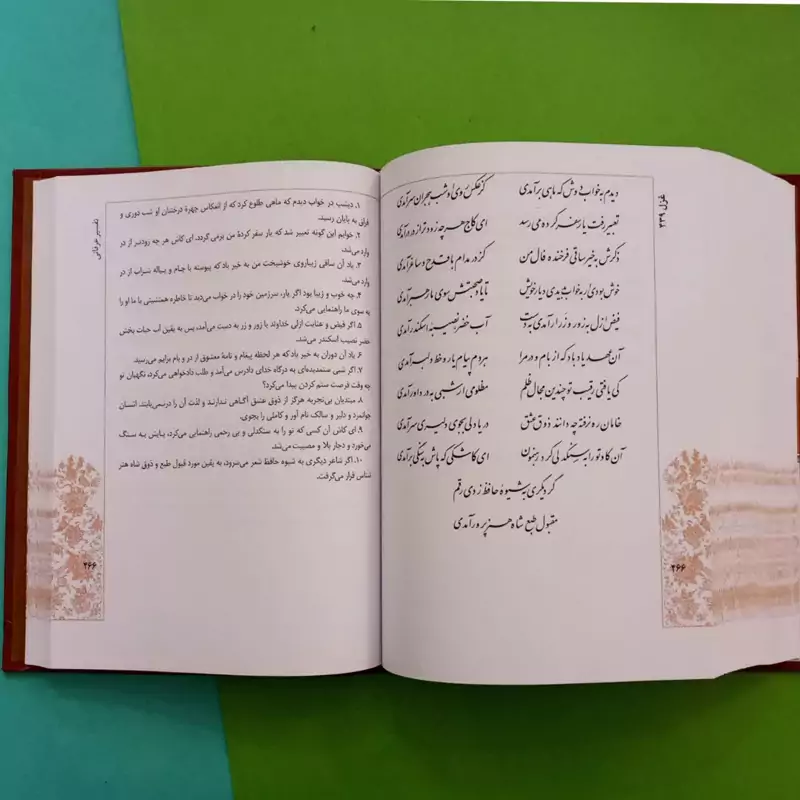 غزل ۴۳۹
دیدم به خواب دوش که ماهی برآمدی کز عکس روی او شب هجران سرآمدی
تعبیر رفت یار سفر کرده می رسد ای کاج هر چه زودتر از در درآمدی
ذکرش به خیر ساقی فرخنده فال من کز در مدام با قدح و ساغر آمدی
خوش بودی ار به خواب بدیدی دیار خویش تا یاد صحبتش سوی ما رهبر آمدی
فیض ازل به زور و زر ار آمدی به دست آب خضر نصیبهٔ اسکندر آمدی
آن عهد یاد باد که از بام و در مرا هر دم پیام یار و خط دلبر آمدی
کی یافتی رقیب تو چندین مجال ظلم مظلومی ار شبی به در داور آمدی
خامان ره نرفته چه دانند ذوق عشق دریادلی بجوی دلیری سرآمدی
آن کاو تو را به سنگدلی کرد رهنمون ای کاشکی که پاش به سنگی برآمدی
گر دیگری به شیوهٔ حافظ زدی رقم
مقبول طبع شاه هنرپرور آمدی
۲۶۶
تفسیر عرفانی
۱. دیشب در خواب دیدم که ماهی طلوع کرد که از انعکاس چهرهٔ درخشان او شب دوری و
فراق به پایان رسید.
۲. خوابم این گونه تعبیر شد که یار سفر کردهٔ من برمی گردد. ای کاش هر چه زودتر از در
وارد می‌شد.
۳. یاد آن ساقی زیباروی خوشبخت من به خیر باد که پیوسته با جام و پیاله شراب از در
وارد می‌شد.
۴. چه خوب و زیبا بود اگر یار، سرزمین خود را در خواب می‌دید تا خاطره همنشینی با ما او را
به سوی ما راهنمایی می‌کرد.
۵. اگر فیض و عنایت ازلی خداوند با زور و زر به دست می‌آمد، پس به یقین آب حیات بخش
خضر نصیب اسکندر می‌شد.
۶. یاد آن دوران به خیر باد که هر لحظه پیغام و نامهٔ معشوق از در و بام برایم می‌رسید.
۷. اگر شبی ستمدیده‌ای به درگاه خدای دادرس می‌آمد و طلب دادخواهی می‌کرد، نگهبان تو
چه وقت فرصت ستم کردن پیدا می‌کرد؟
۸. مبتدیان بی‌تجربه هرگز از ذوق عشق آگاهی ندارند و لذت آن را درنمی‌یابند. انسان
جوانمرد و دلیر و سالک نام آور و کاملی را بجوی.
۹. ای کاش آن کسی که تو را به سنگدلی و بی رحمی راهنمایی می‌کرد، پایش به سنگ
می‌خورد و دچار بلا و مصیبت می‌شد.
۱۰. اگر شاعر دیگری به شیوه حافظ شعر می‌سرود، به یقین مورد قبول طبع و ذوق شاه هنر
شناس قرار می‌گرفت.
۲۶۶